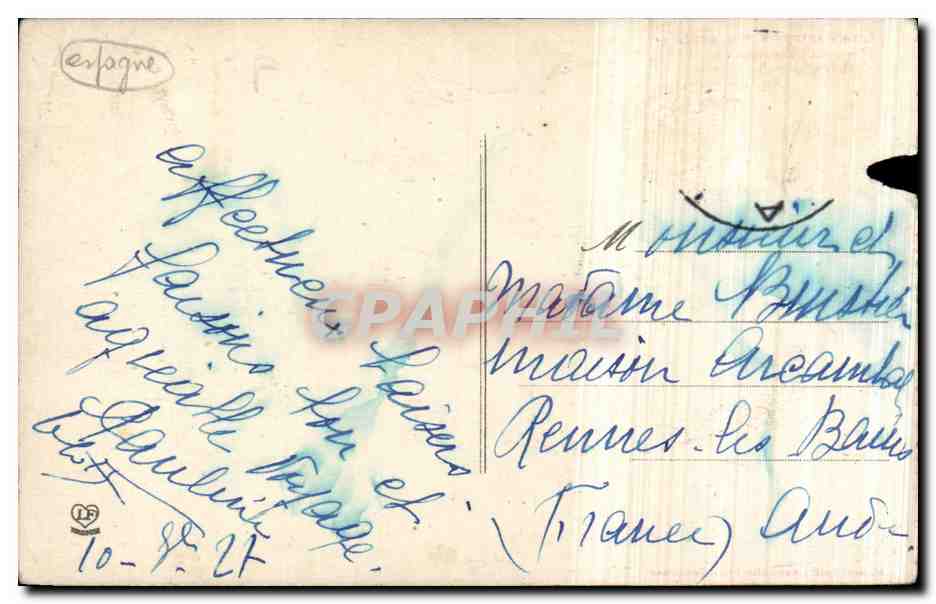 espagne
affectueux baisers.
faisons bon et
agréable voyage.
Pauline
10 - 27
LF
Monsieur et
Madame
maison
Rennes-les Bains
(France) Aude
GRAPHIL